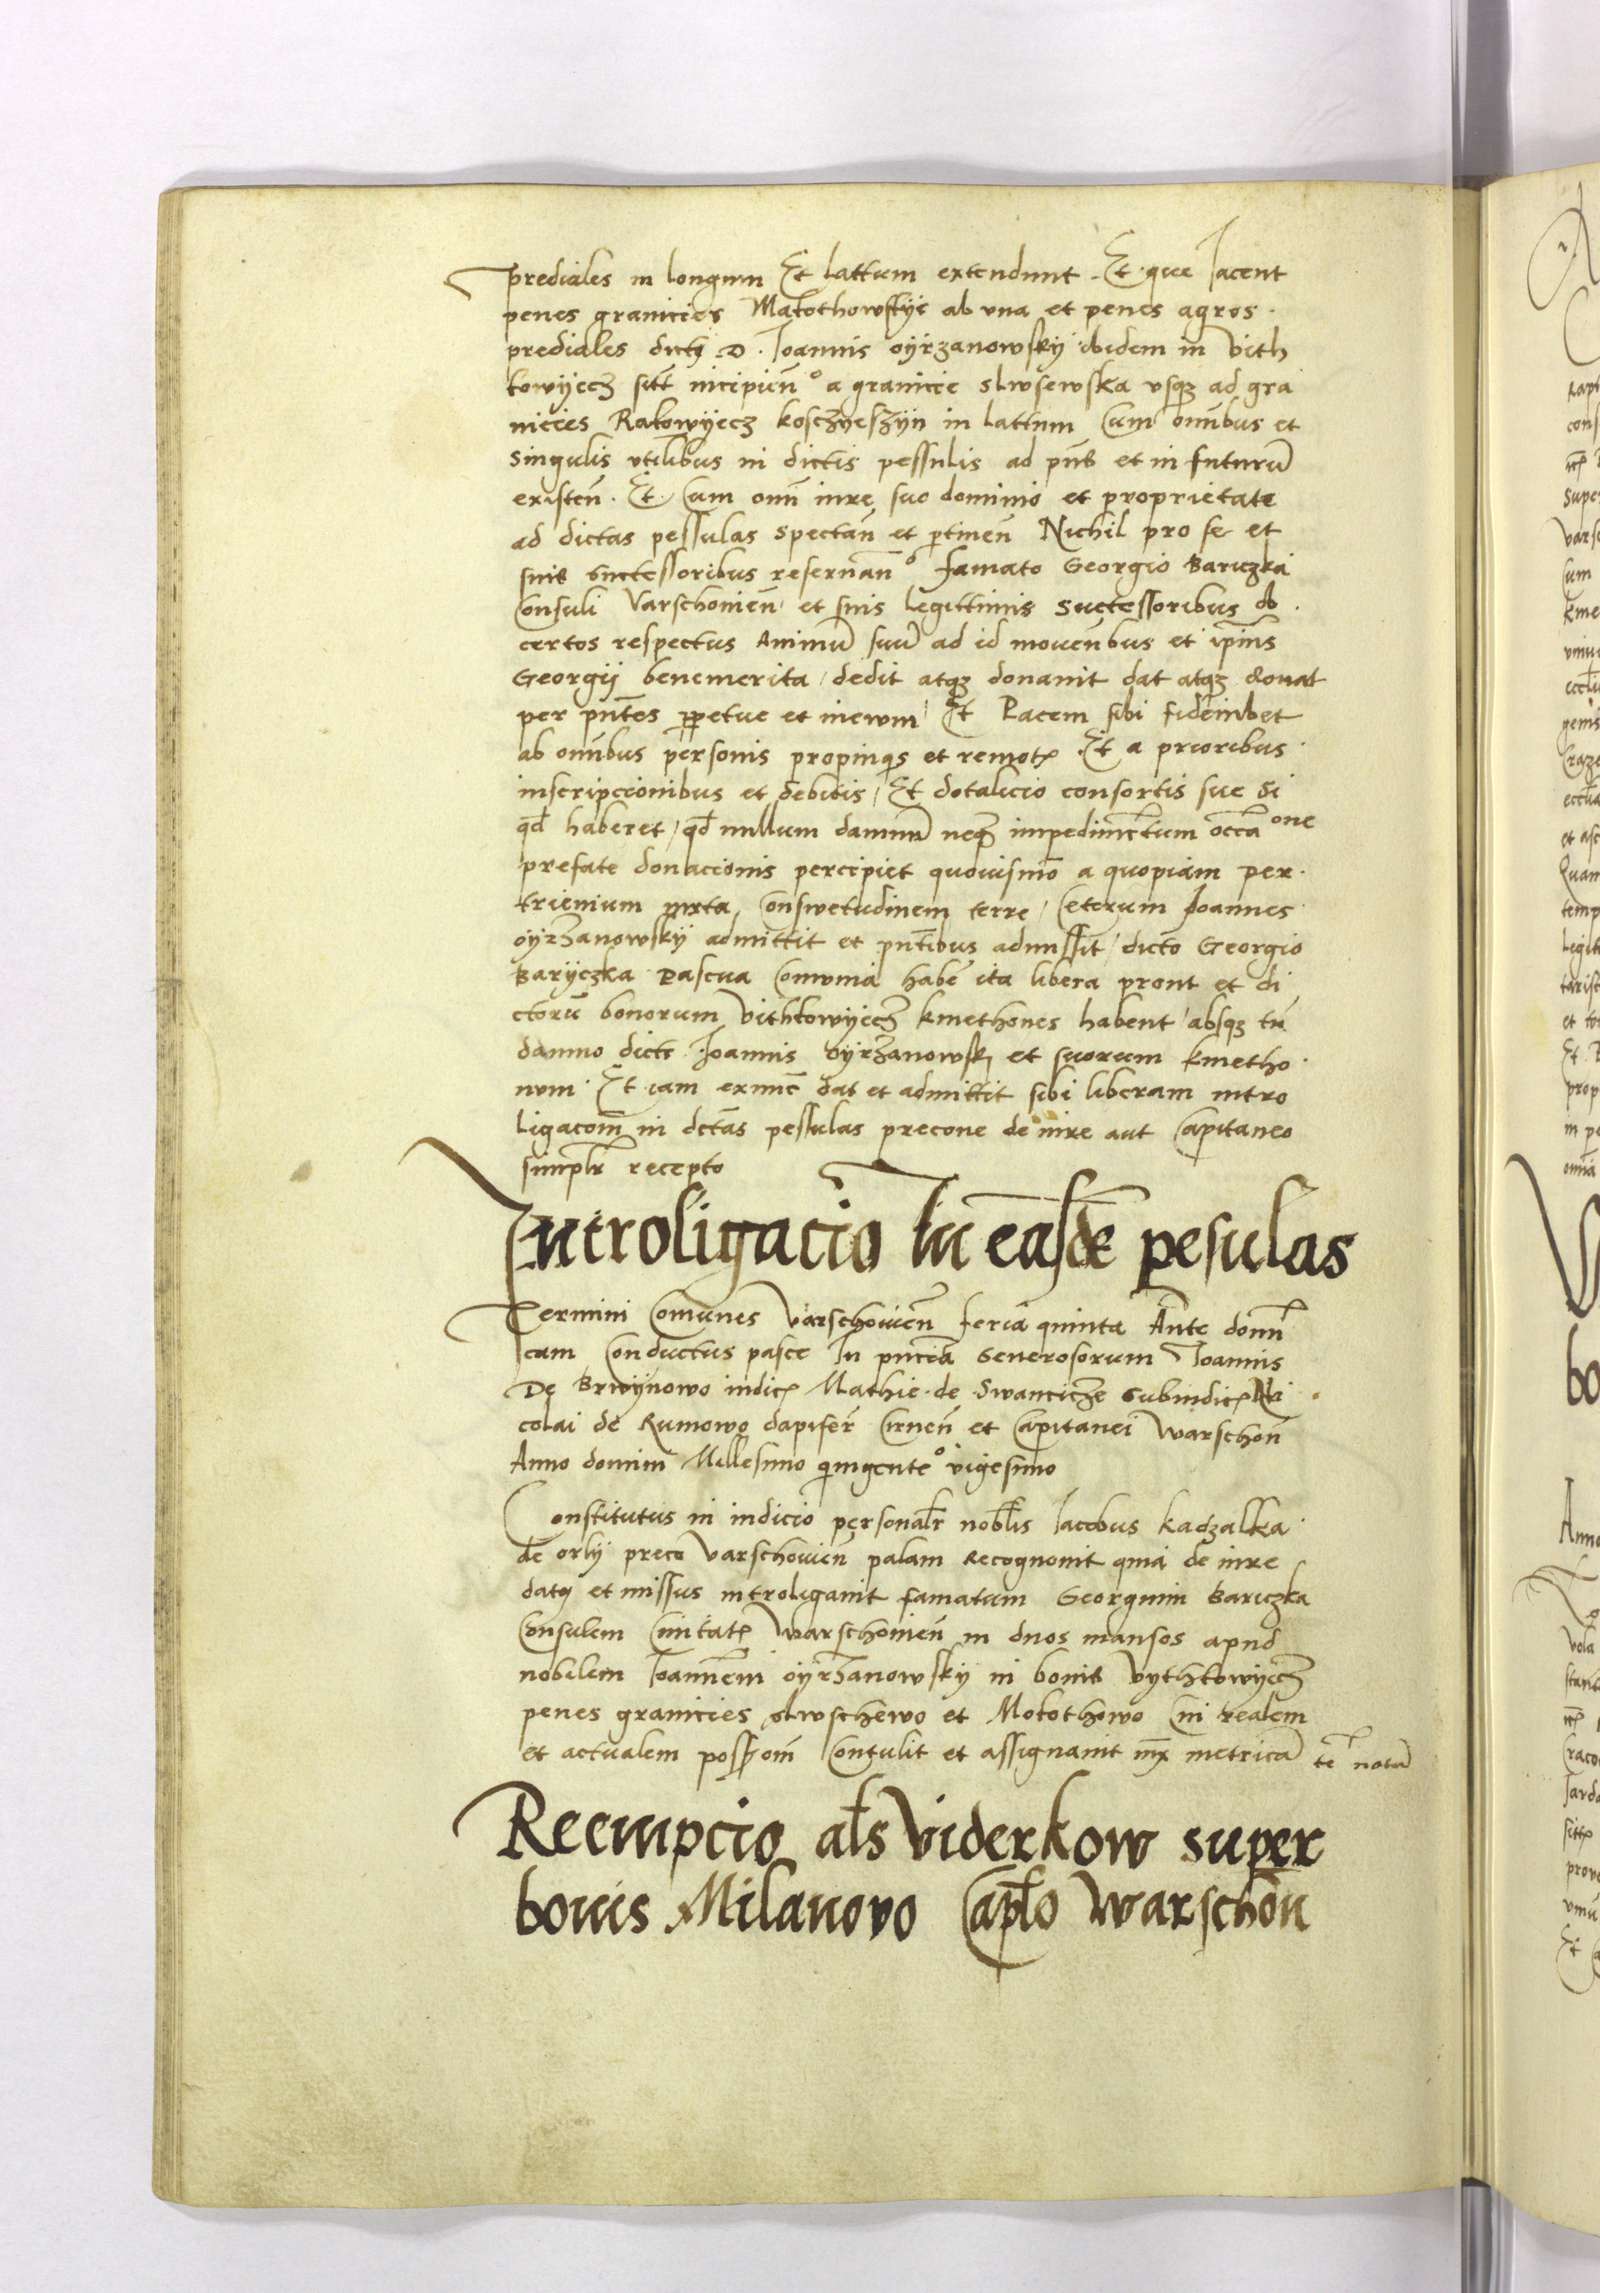 prediales in longum Et lattum extendunt. Et que Jacent
penes granicies Makothowskye ab una et penes agros
prediales dicti D. Joannis oyrzanowsky ibidem in Vith
kowyecz sitt incipien a granicie slwsewska usqz ad gra
nicies Rakowyecz koschyeszyn in lattum Cum omnibus et
singulis utilibus in dictis pessulis ad pns et in futurum
existen. Et Cum omni iure suo dominio et proprietate
ad dictas pessulas spectan et ptinen Nichil pro se et
suis successoribus reservan famato Georgio Bariczka
Consuli Varschovien et suis legittimis successoribus ob
certos respectus Animum suum ad id moventibus et ipius
Georgii benemerita / dedit atqz donavit dat atqz donat
per pntes ppetue et inewm / Et Pacem sibi fideiubet
ab omnibus personis propinqis et remotis Et a prioribus
inscripcionibus et debitis / Et dotalicio consortis sue Si
qd haberet / qd nullum damnum neqz impedimentum occaone
prefate donacionis percipiet quovismo a quopiam per
trienium iuxta Conswetudinem terre / Ceterum Joannes
oyrzanowsky admittit et pntibus admissit / dicto Georgio
Baryczka Pascua Comunia habe ita libera prout et di
ctorum bonorum Vithkowyecz kmethones habent / absqz tn
damno dicti Joannis oyrzanowsk et suorum kmetho
num. Et iam exnunc dat et admittit sibi liberam intro
ligacom in dctas pessulas precone de iure aut Capitaneo
simplr recepto
Introligacio In easde pesulas
Termini Comunes Varschovien feria quinta Ante domi
cam Conductus pasce In pncia Generosorum Joannis
De Brwynowo iudic Mathie de Swanticze Subiudic Ni
colai de Rumowo dapifer Cirnen et Capitanei Warschon
Anno domini Millesimo qingente° vigesimo
Constitutus in iudicio personalr noblis Jacobus kadzalka
de orly preco Varschovien palam Recognovit quia de iure
datq et missus introligavit famatum Georgium Bariczka
Consulem Civitatis Warschovien in duos mansos apud
nobilem Joannem oyrzanowsky in bonis Vythkowyecz
penes granicies slwschewo et Mokothowo Cui realem
et actualem possom Contulit et assignavit metrica te notm
Reempcio als Viderkow super
bonis Milanovo Caplo Warschon